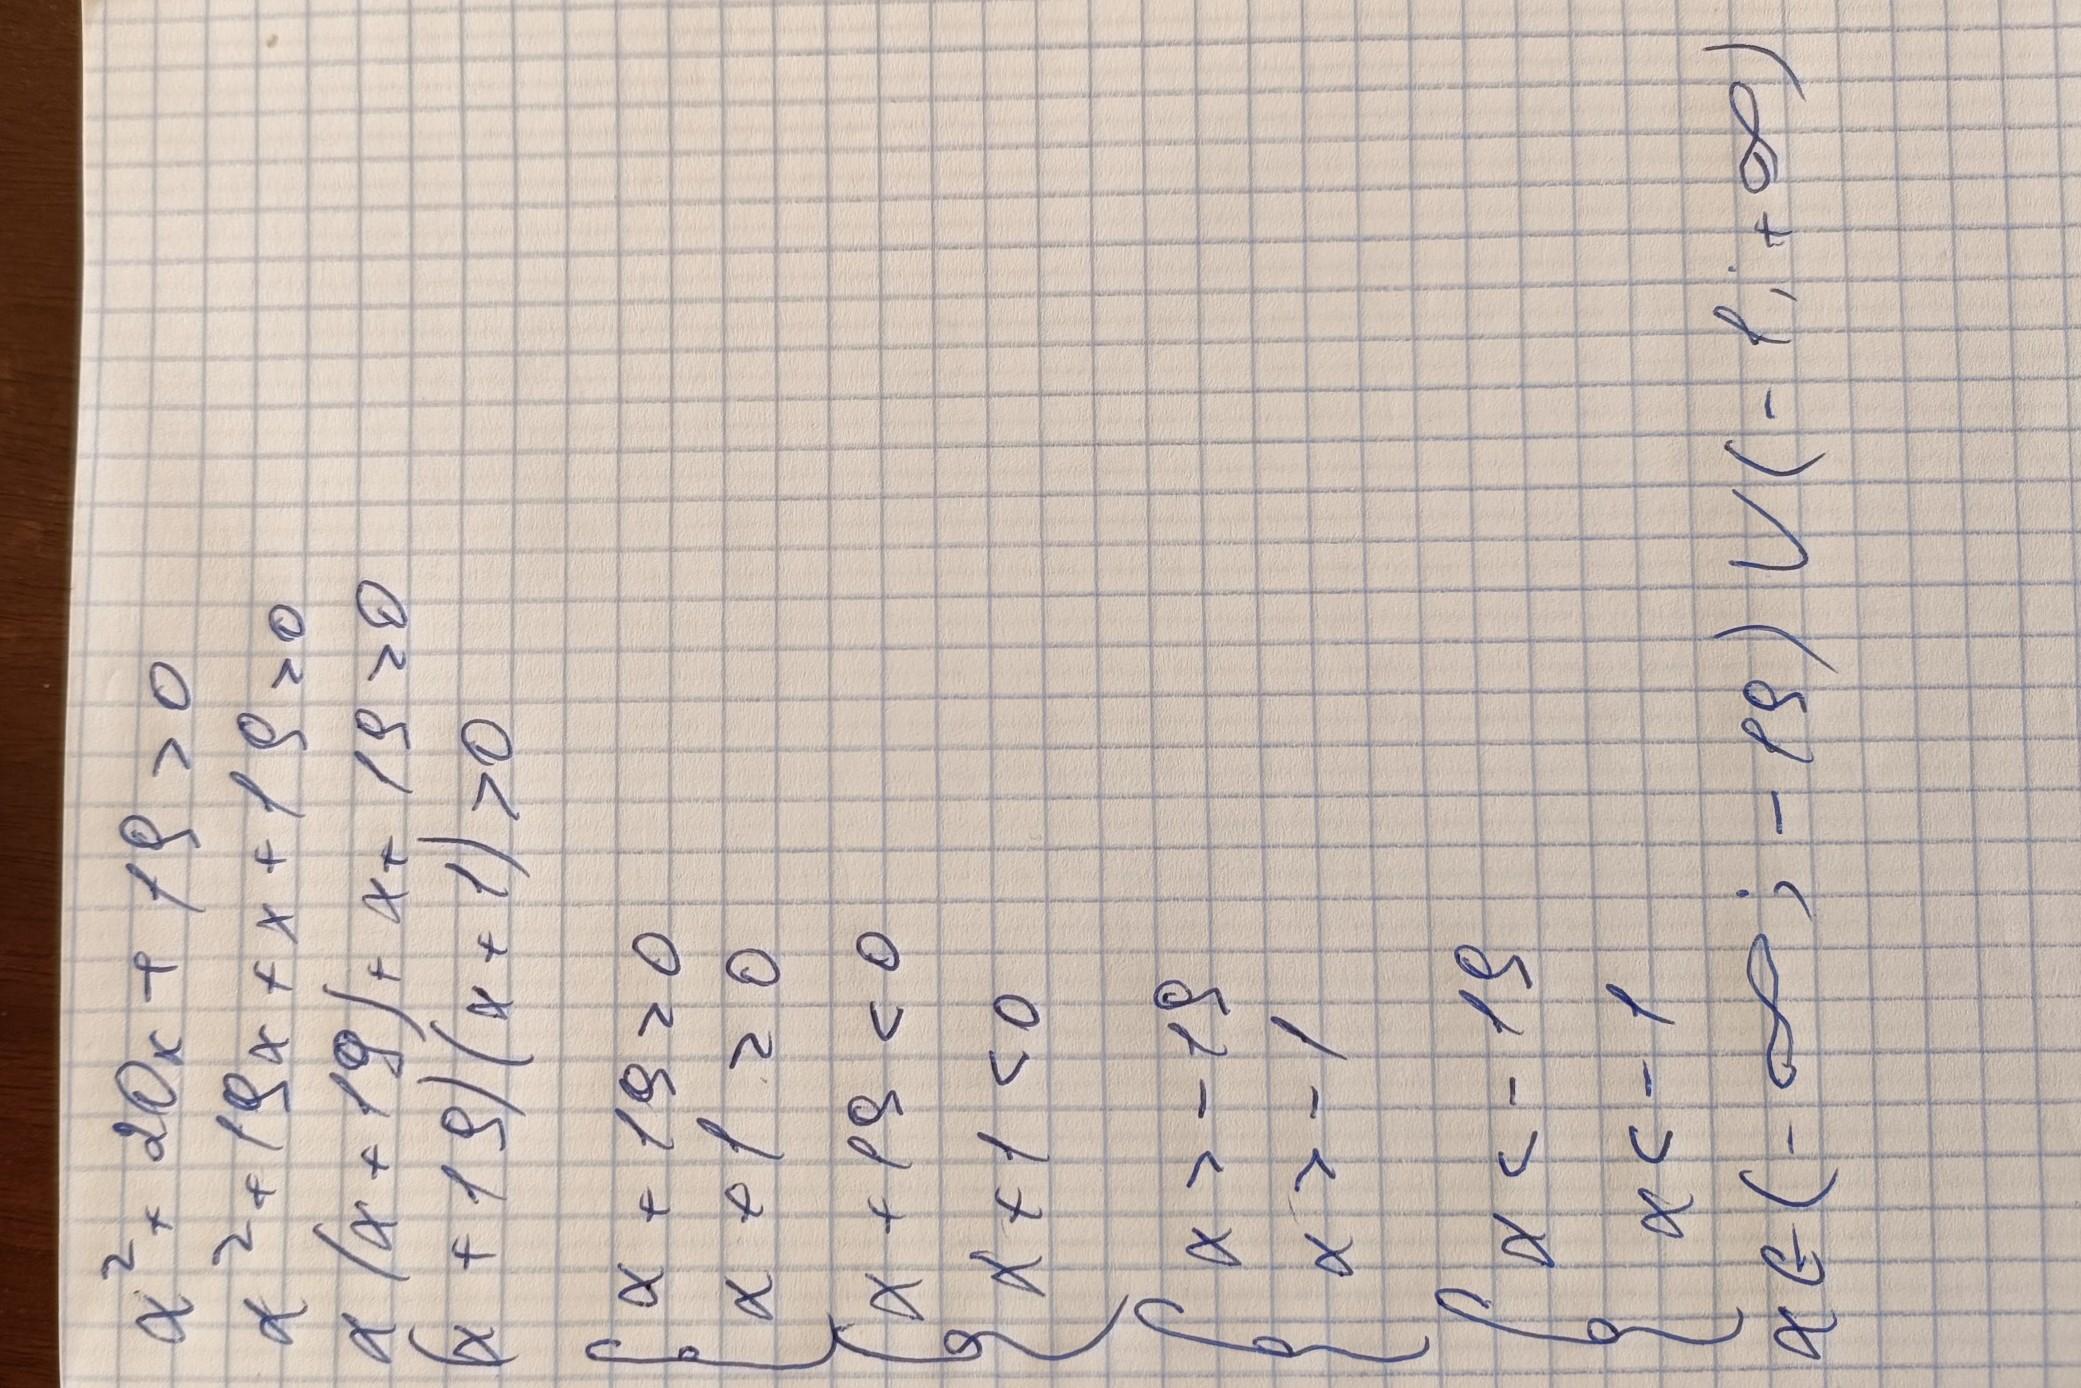 x² + 20x + 19 > 0
x² + 19x + x + 19 > 0
x(x + 19) + x + 19 > 0
(x + 19)(x + 1) > 0
{ x + 19 > 0
x + 1 > 0
{ x + 19 < 0
x + 1 < 0
{ x > -19
x > -1
{ x < -19
x < -1
x ∈ (-∞; -19) ∪ (-1; +∞)